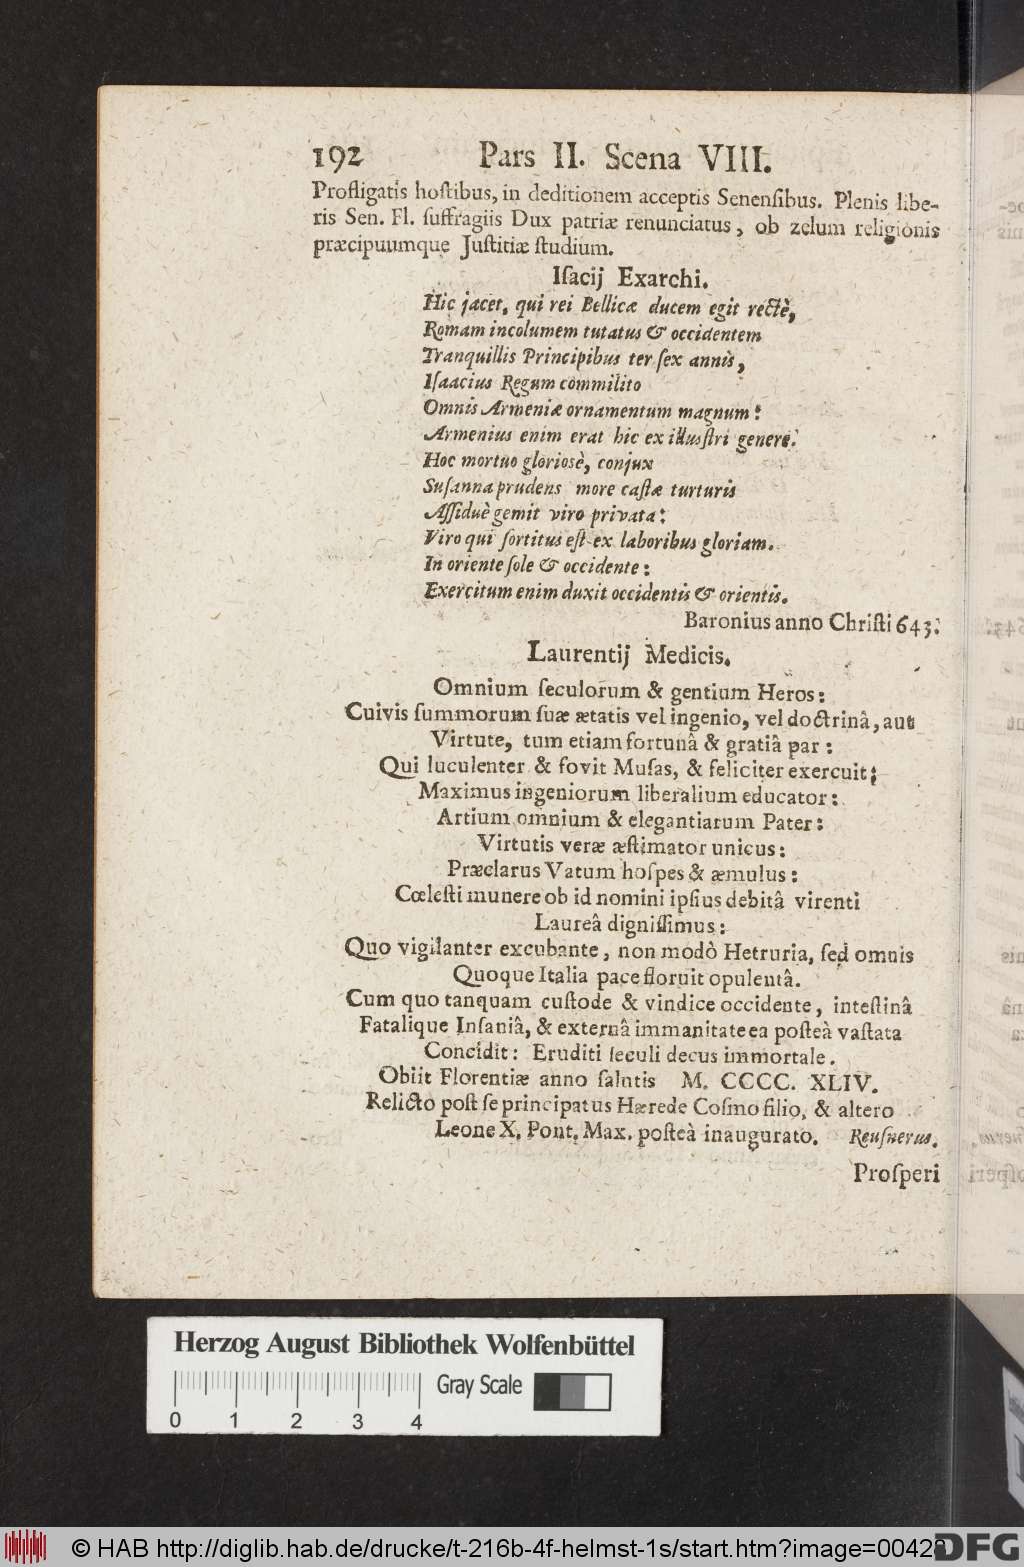 192 Pars II. Scena VIII.
Profligatis hoſtibus, in deditionem acceptis Senenſibus. Plenis libe-
ris Sen. Fl. ſuffragiis Dux patriæ renunciatus, ob zelum religionis
præcipuumque Juſtitiæ ſtudium.
Iſacij Exarchi.
Hic jacet, qui rei Bellicæ ducem egit rectè,
Romam incolumem tutatus & occidentem
Tranquillis Principibus ter ſex annis,
Iſaacius Regum commilito
Omnis Armeniæ ornamentum magnum:
Armenius enim erat hic ex illuſtri genere.
Hoc mortuo glorioſè, conjux
Suſanna prudens more caſtæ turturis
Aſſiduè gemit viro privata:
Viro qui ſortitus eſt ex laboribus gloriam.
In oriente ſole & occidente:
Exercitum enim duxit occidentis & orientis.
Baronius anno Chriſti 643.
Laurentij Medicis.
Omnium ſeculorum & gentium Heros:
Cuivis ſummorum ſuæ ætatis vel ingenio, vel doctrinâ, aut
Virtute, tum etiam fortunâ & gratiâ par:
Qui luculenter & fovit Muſas, & feliciter exercuit;
Maximus ingeniorum liberalium educator:
Artium omnium & elegantiarum Pater:
Virtutis veræ æſtimator unicus:
Præclarus Vatum hoſpes & æmulus:
Cœleſti munere ob id nomini ipſius debitâ virenti
Laureâ digniſſimus:
Quo vigilanter excubante, non modò Hetruria, ſed omnis
Quoque Italia pace floruit opulentâ.
Cum quo tanquam cuſtode & vindice occidente, inteſtinâ
Fatalique Inſaniâ, & externâ immanitate ea poſteà vaſtata
Concidit: Eruditi ſeculi decus immortale.
Obiit Florentiæ anno ſalutis M. CCCC. XLIV.
Relicto poſt ſe principatus Hærede Coſmo filio, & altero
Leone X. Pont. Max. poſteà inaugurato. Reuſnerus.
Proſperi
Herzog August Bibliothek Wolfenbüttel
Gray Scale
0 1 2 3 4
© HAB http://diglib.hab.de/drucke/t-216b-4f-helmst-1s/start.htm?image=00428
DFG